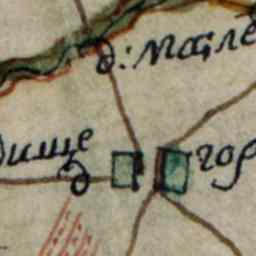 д: Масле
дище
гор